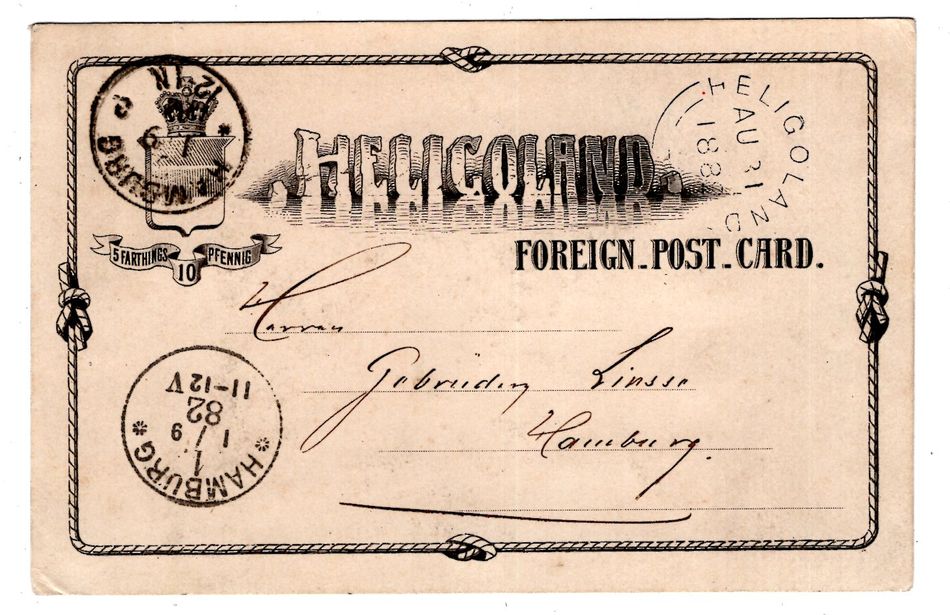 HELIGOLAND.
HELIGOLAND
AU 31
188
5 FARTHINGS 10 PFENNIG
FOREIGN_POST_CARD.
HAMBURG
1 9
12 N
Herren
Gebrüder Linsse
Hamburg.
* HAMBURG *
1
1/9
82
11-12 V